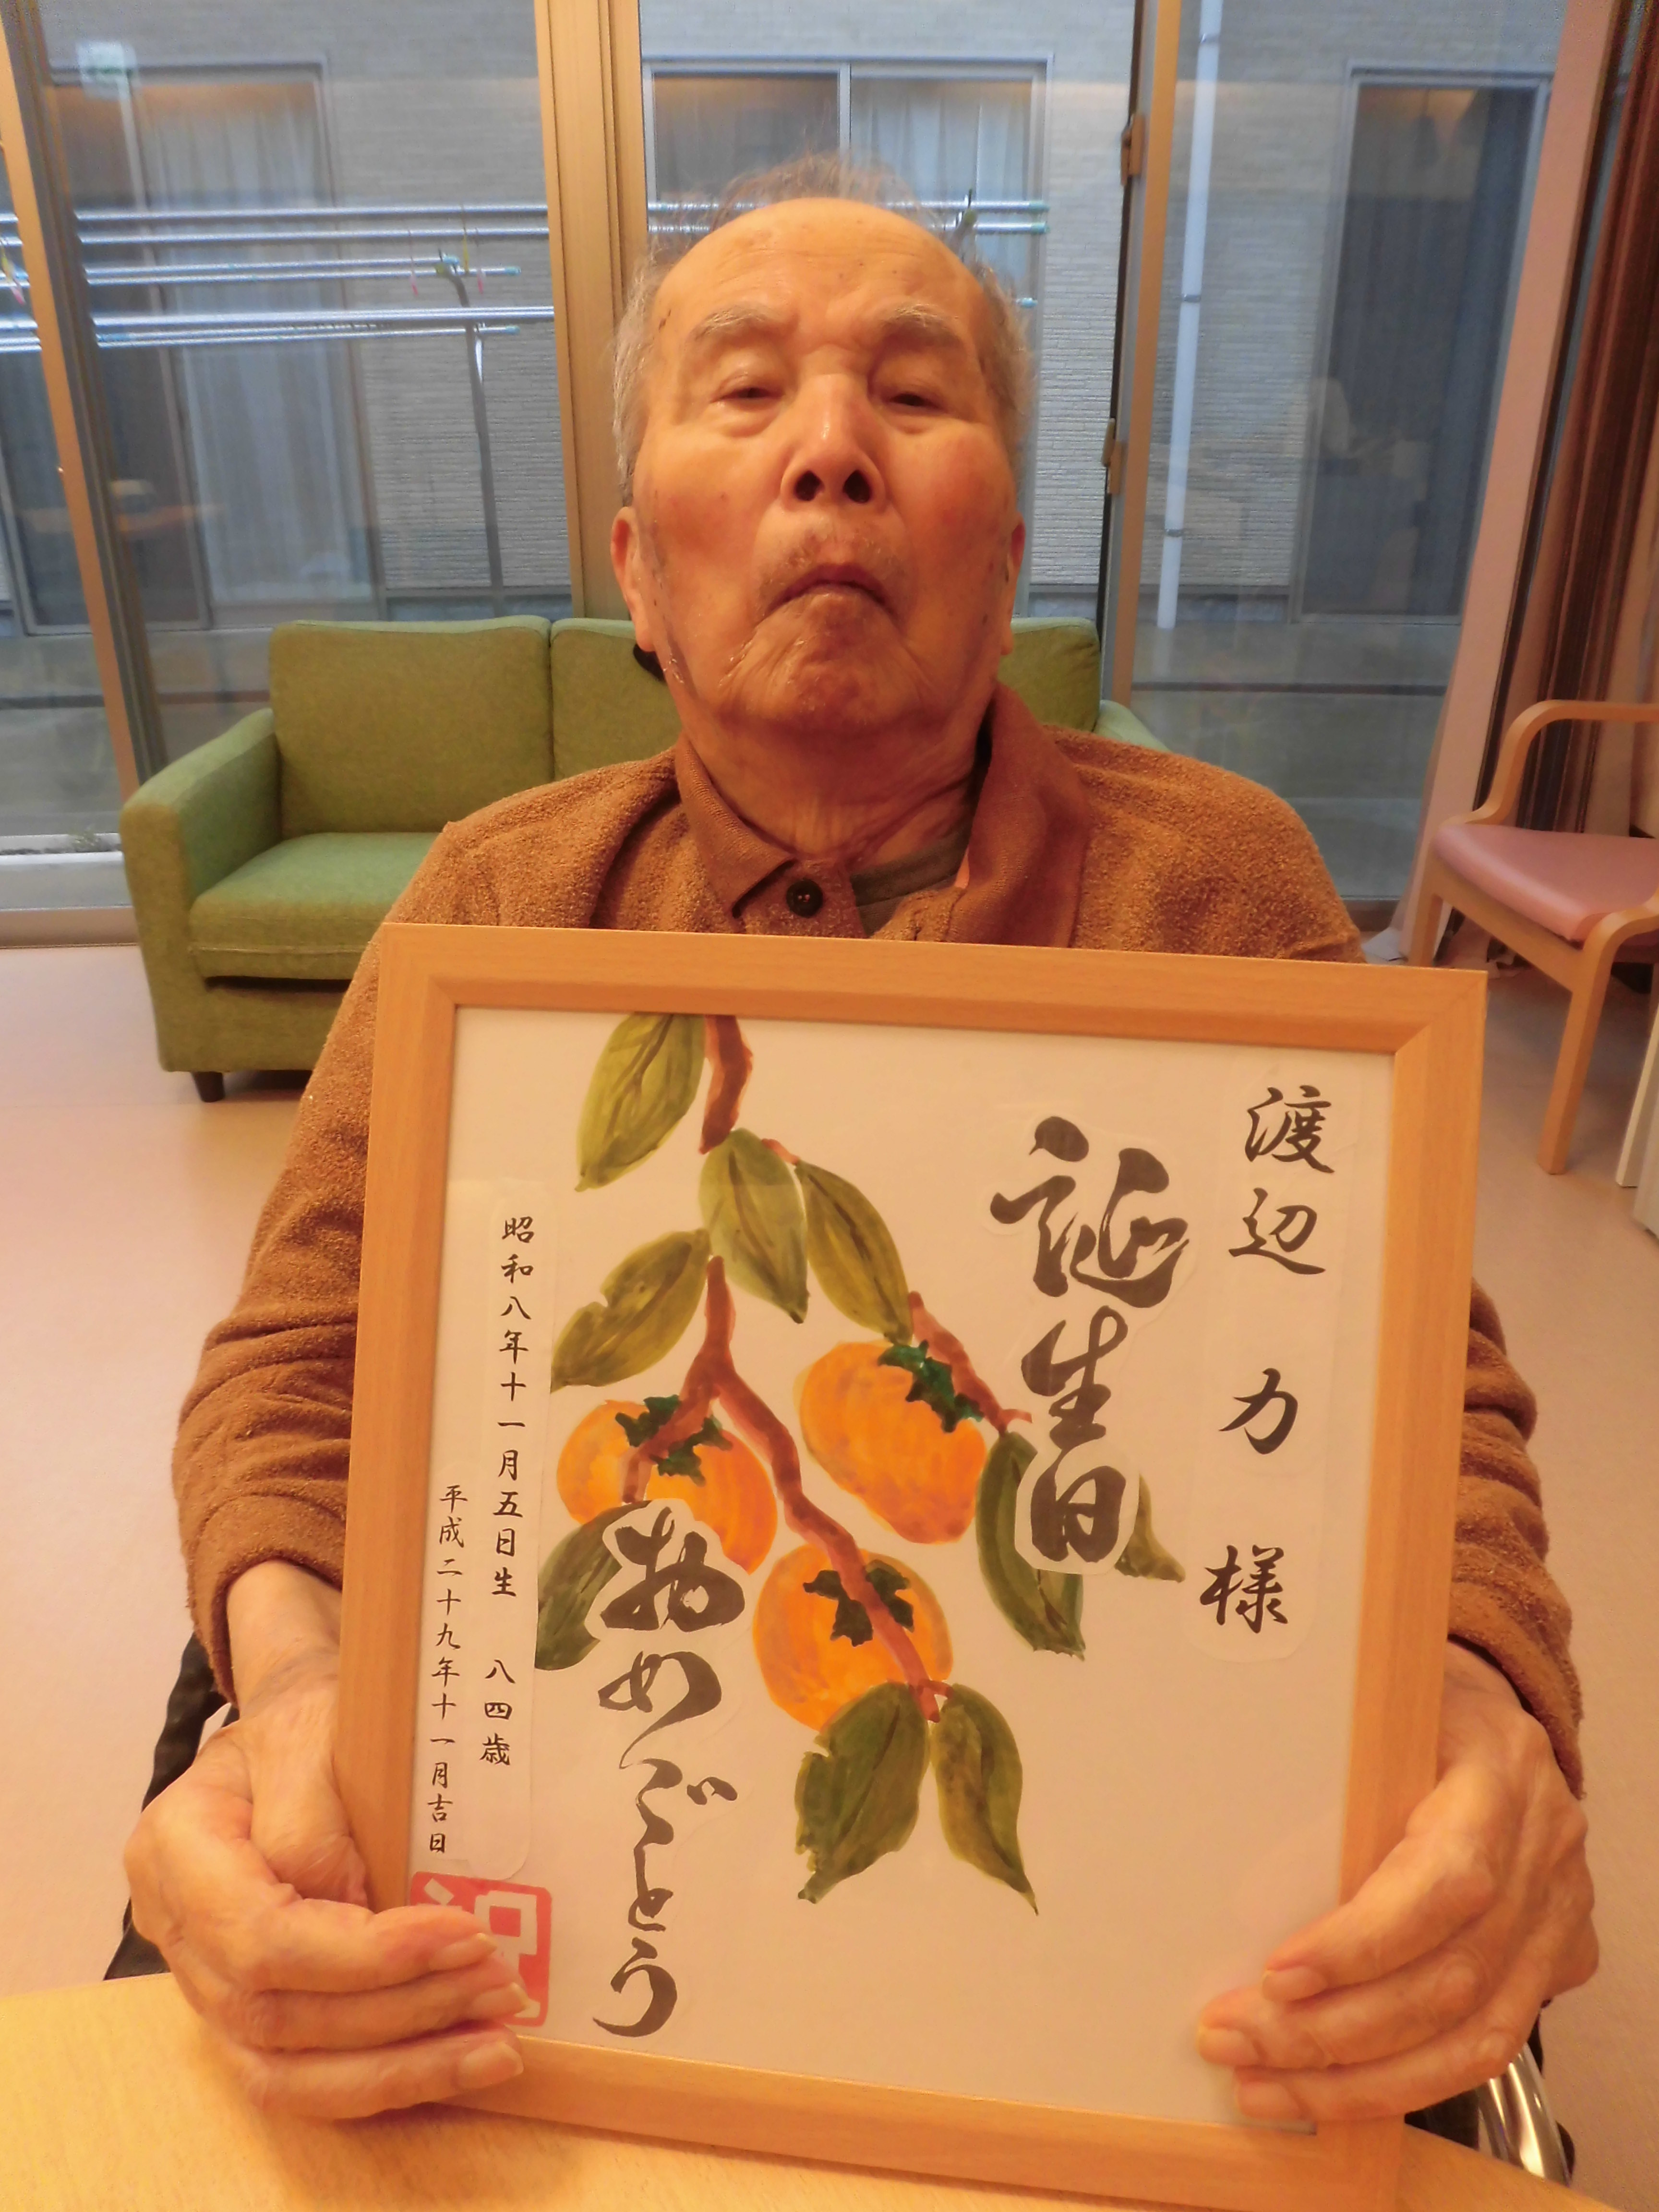 渡辺 力 様
誕生日
おめでとう
昭和八年十一月五日生 八四歳
平成二十九年十一月吉日
祝